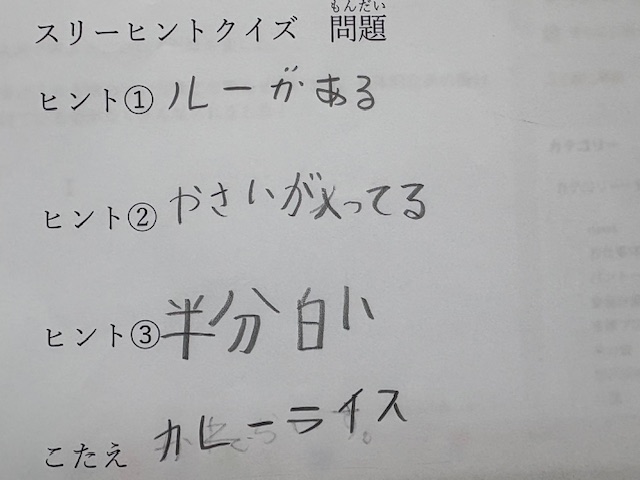 スリーヒントクイズ 問題
もんだい
ヒント① ルーがある
ヒント② やさいが入ってる
ヒント③ 半分白い
こたえ カレーライス
カテゴリー